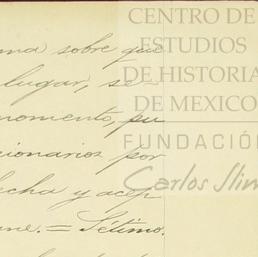 CENTRO DE
ESTUDIOS
DE HISTORIA
DE MEXICO
FUNDACIÓN
Carlos Slim
sobre que
lugar, se
momento, pu
cionarios por
fecha y acep
ne. = Sétimo.